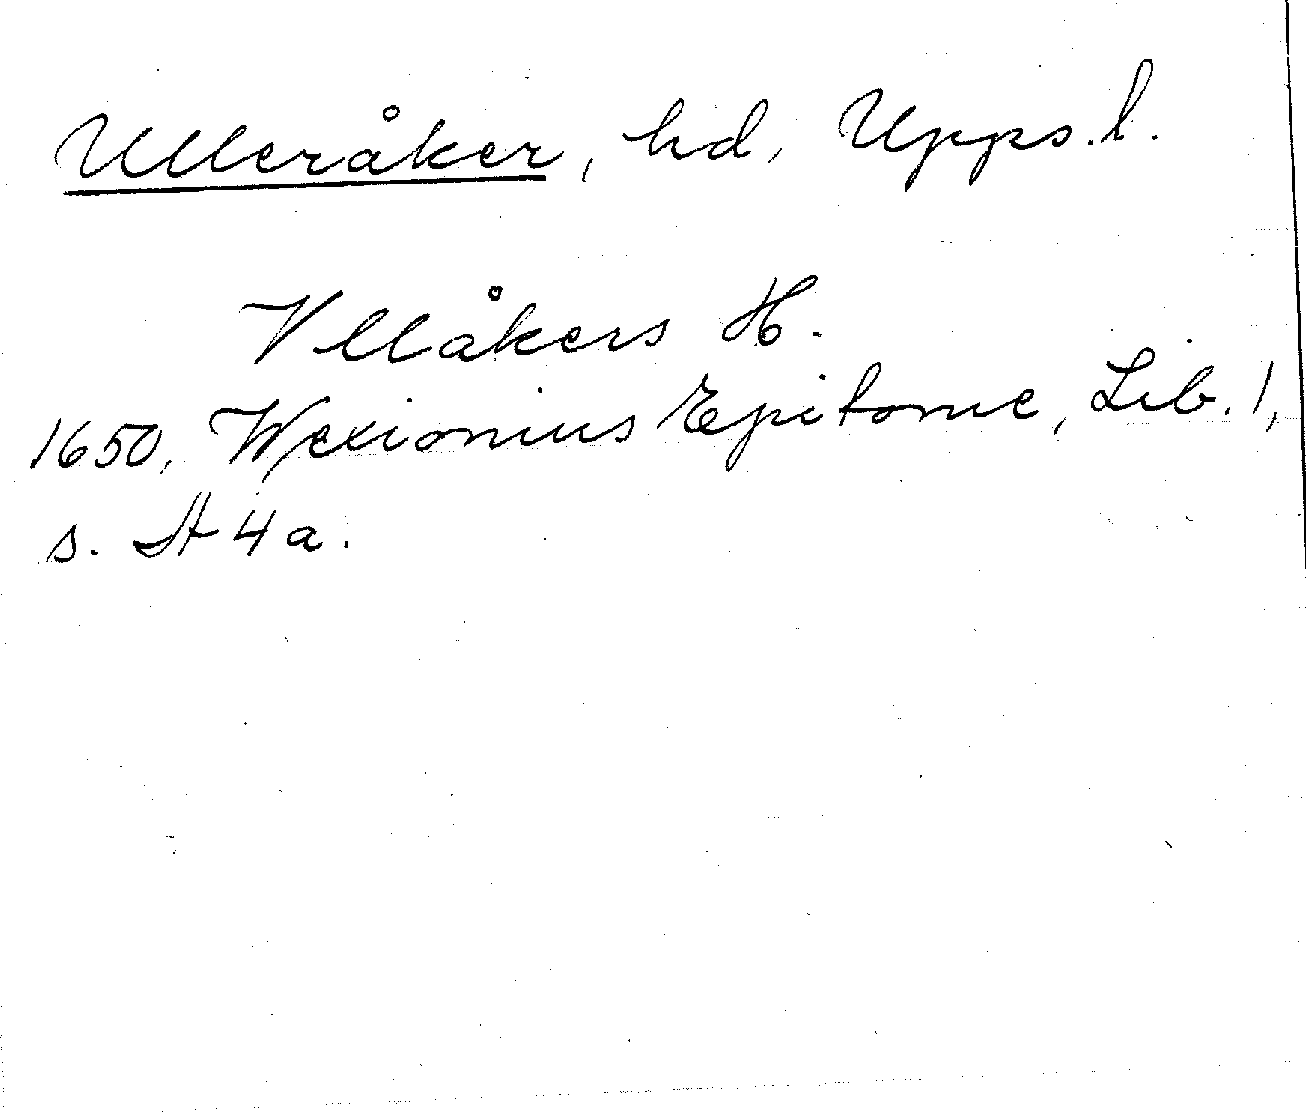 Ulleråker, hd, Upps. l.
Vllåkers H.
1650, Wexionius Epitome, Lib. 1,
s. A 4 a.